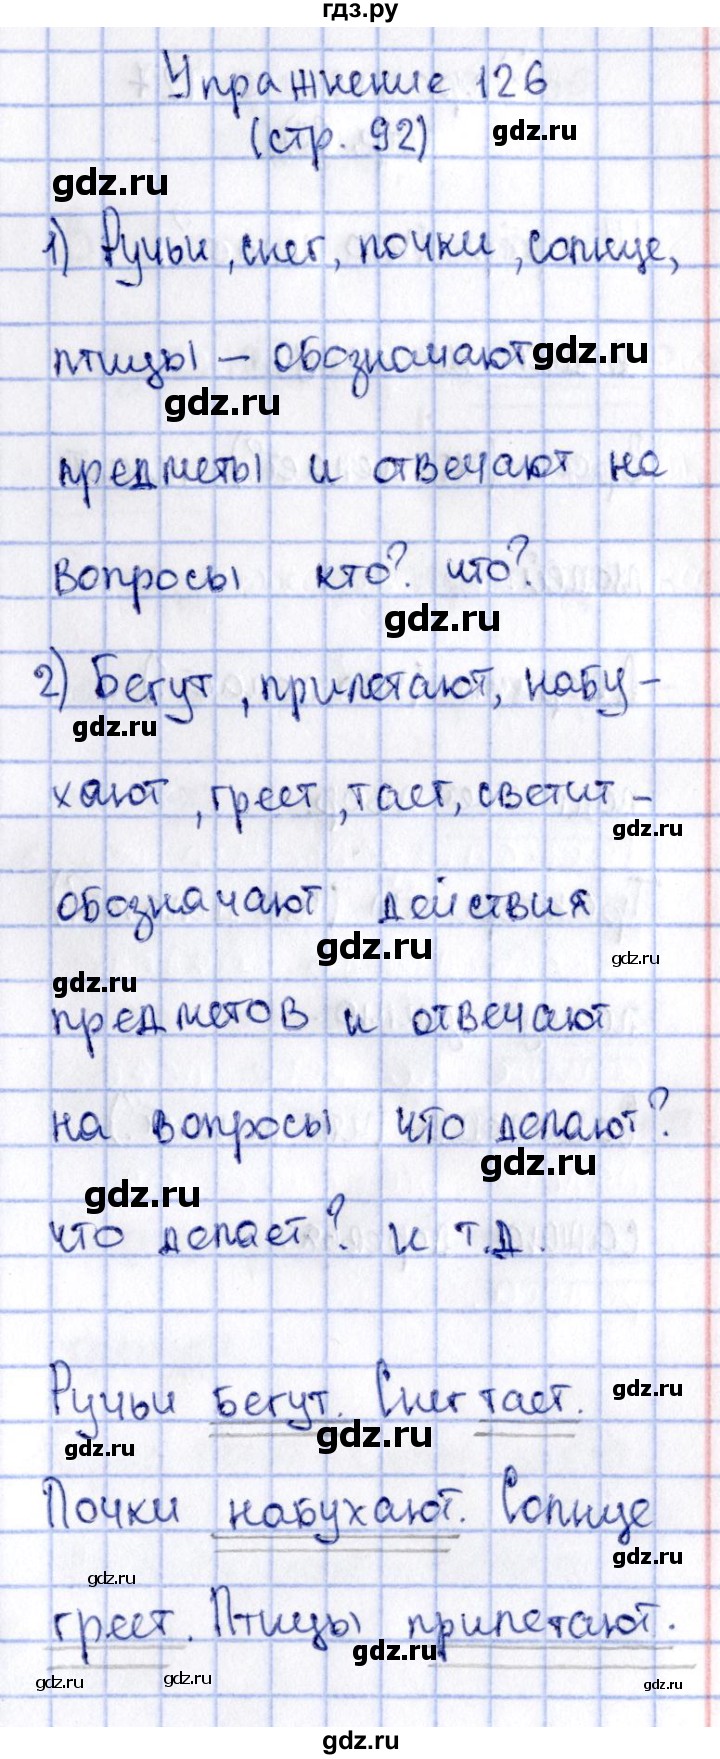 гдз.ру
Упражнение 126
(стр. 92) gdz.ru
gdz.ru
1) Ручьи, снег, почки, солнце,
птицы – обозначают gdz.ru
gdz.ru
предметы и отвечают на
вопросы кто? что?
gdz.ru
2) Бегут, прилетают, набу-
gdz.ru
хают, греет, тает, светит –
gdz.ru
обозначают действия
gdz.ru gdz.ru
gdz.ru
предметов и отвечают
на вопросы что делают?
gdz.ru
gdz.ru
что делает? и т.д.
gdz.ru
Ручьи бегут. Снег тает.
gdz.ru gdz.ru
Почки набухают. Солнце
gdz.ru
gdz.ru
греет. Птицы прилетают.
gdz.ru
gdz.ru gdz.ru gdz.ru
gdz.ru